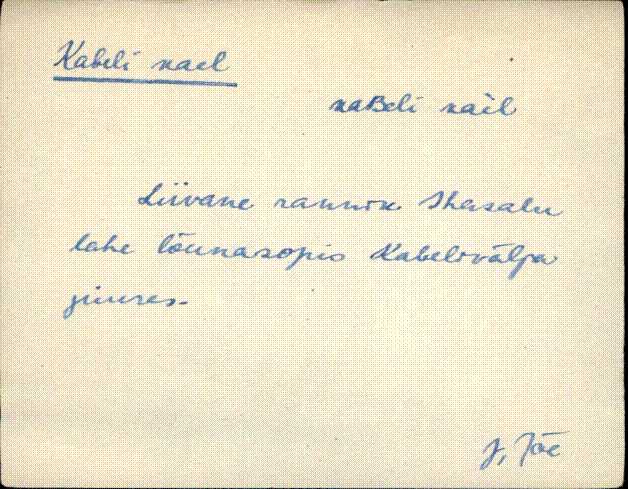 Kabeli nael
kaBeli naèl
Liivane rannik Ihasalu
lahe lõunasopis Kabelivälja
juures.
J. Jõe